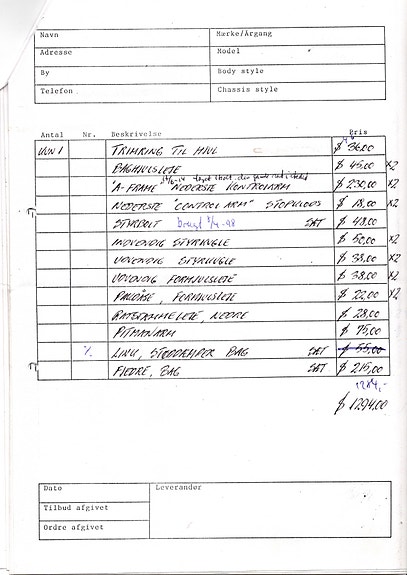 Navn Mærke/Årgang
Adresse Model
By Body style
Telefon Chassis style
Antal Nr. Beskrivelse Pris
TRIMRING TIL HJUL $ 36,00
BAGHJULSLEJE $ 45,00 x2
"A-FRAME" NEDERSTE KONTROLARM $ 230,00 x2
NEDERSTE "CONTROL ARM" STOPKLODS $ 18,00 x2
STYRBOLT SÆT $ 48,00
INDVENDIG STYRKUGLE $ 50,00 x2
UDVENDIG STYRKUGLE $ 38,00 x2
UDVENDIG FORHJULSLEJE $ 38,00 x2
PAKDÅSE, FORHJULSLEJE $ 22,00 x2
NEDRE $ 28,00
PITMANARM $ 75,00
%. LINK, STØDDÆMPER BAG SÆT $ 55,00
FJEDRE, BAG SÆT $ 215,00
$ 1294,00
Dato Leverandør
Tilbud afgivet
Ordre afgivet